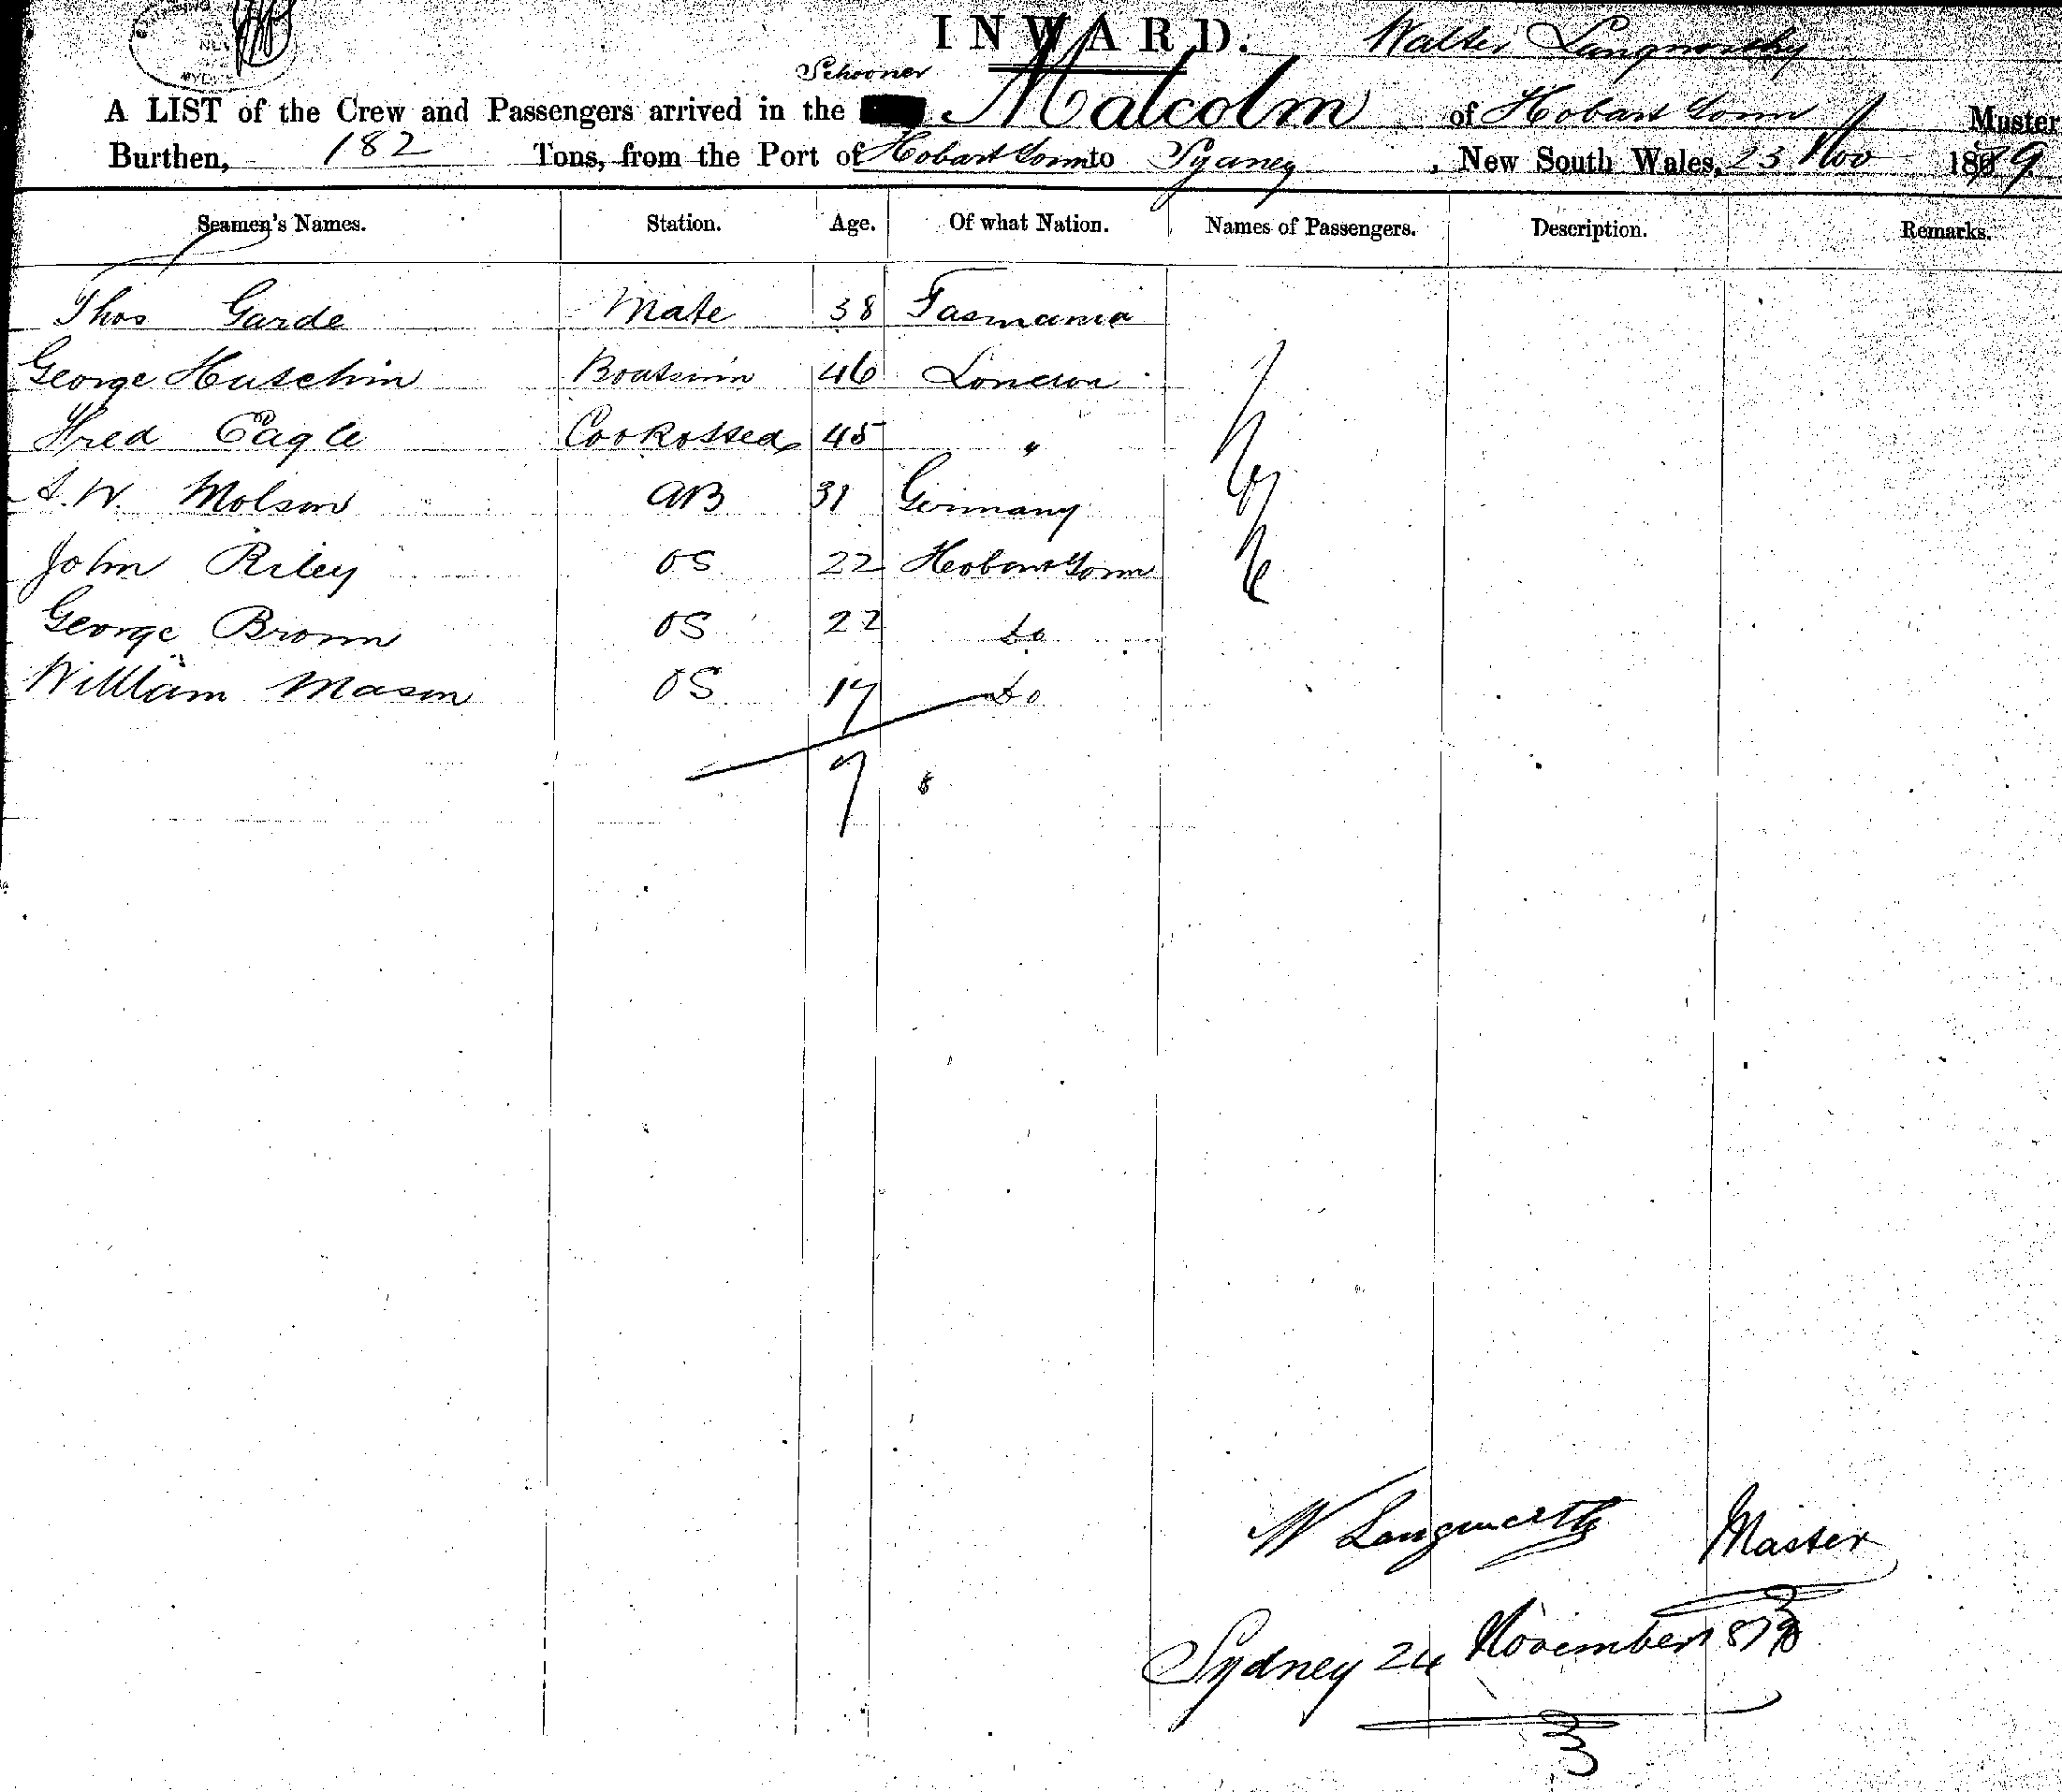 INWARD. Walter Langworthy
Schooner
A LIST of the Crew and Passengers arrived in the Malcolm of Hobart Town Muster
Burthen, 182 Tons, from the Port of Hobart Town to Sydney, New South Wales, 23 Nov 1879
Seamen's Names. Station. Age. Of what Nation. Names of Passengers. Description. Remarks.
Thos Garde Mate 38 Tasmania
George Hutchin Boatswin 46 London
Fred Eagle Cook & Steed 45 "
A. W. Molson AB 31 Germany
John Riley OS 22 Hobart Town
George Brown OS 22 do
William Mason OS 17 do
7
W Langworthy Master
Sydney 24 November 1879